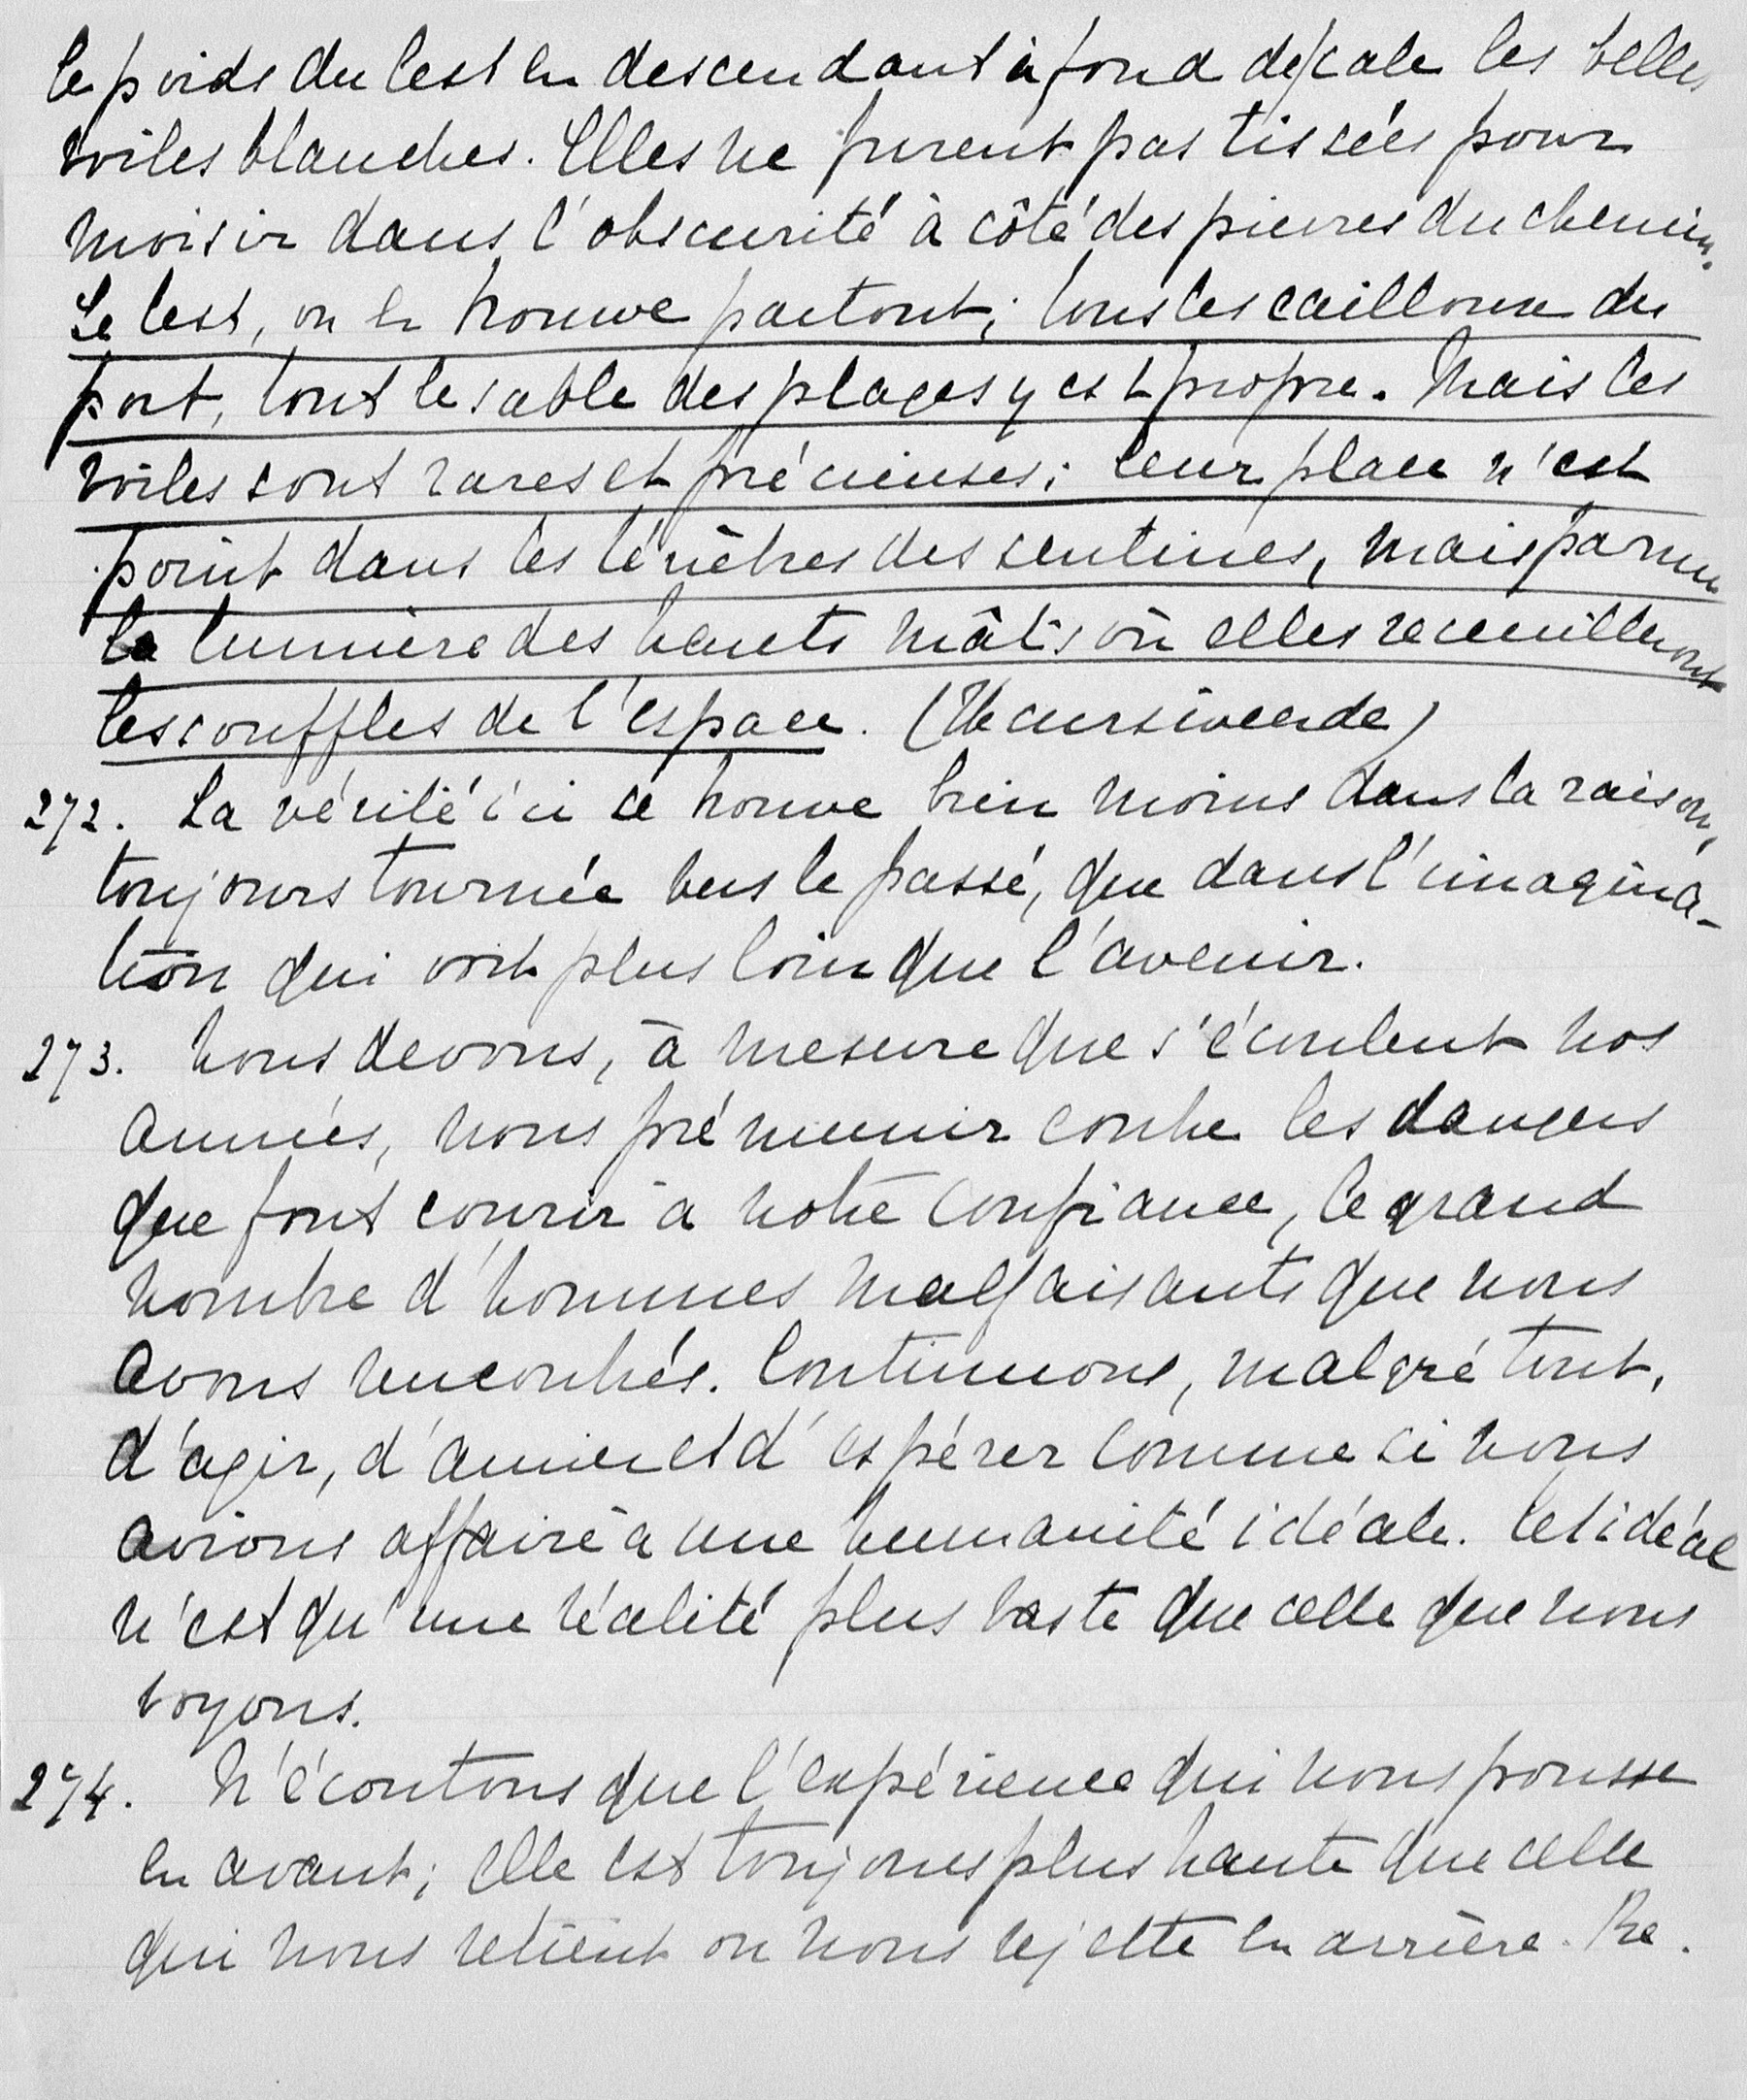 le poids du lest en descendant à fond de cale les belles
voiles blanches. Elles ne furent pas tissées pour
moisir dans l'obscurité à côté des pierres du chemin.
Le lest, on le trouve partout; tous les cailloux du
port, tout le sable des plages y est propre. Mais les
voiles sont rares et précieuses; leur place n'est
point dans les ténèbres des sentines, mais parmi
la lumière des hauts mâts où elles recueilleront
les souffles de l'espace.
272. La vérité ici se trouve bien moins dans la raison,
toujours tournée vers le passé, que dans l'imagina-
tion qui voit plus loin que l'avenir.
273. Nous devons, à mesure que s'écoulent nos
années, nous prémunir contre les dangers
que font courir à notre confiance, le grand
nombre d'hommes malfaisants que nous
avons rencontrés. Continuons, malgré tout,
d'agir, d'aimer et d'espérer comme si nous
avions affaire à une humanité idéale. Cet idéal
n'est qu'une réalité plus vaste que celle que nous
voyons.
274. N'écoutons que l'expérience qui nous pousse
en avant; elle est toujours plus haute que celle
qui nous retient ou nous rejette en arrière. Re.